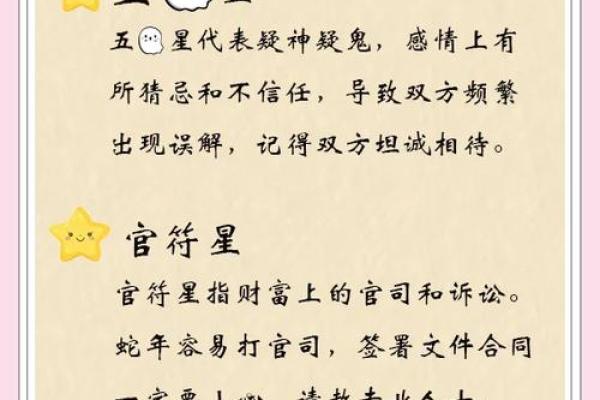 五星
五星代表疑神疑鬼，感情上有
所猜忌和不信任，导致双方频繁
出现误解，记得双方坦诚相待。
官符星
官符星指财富上的官司和诉讼。
蛇年容易打官司，签署文件合同
一定要小心，请教专业人士。